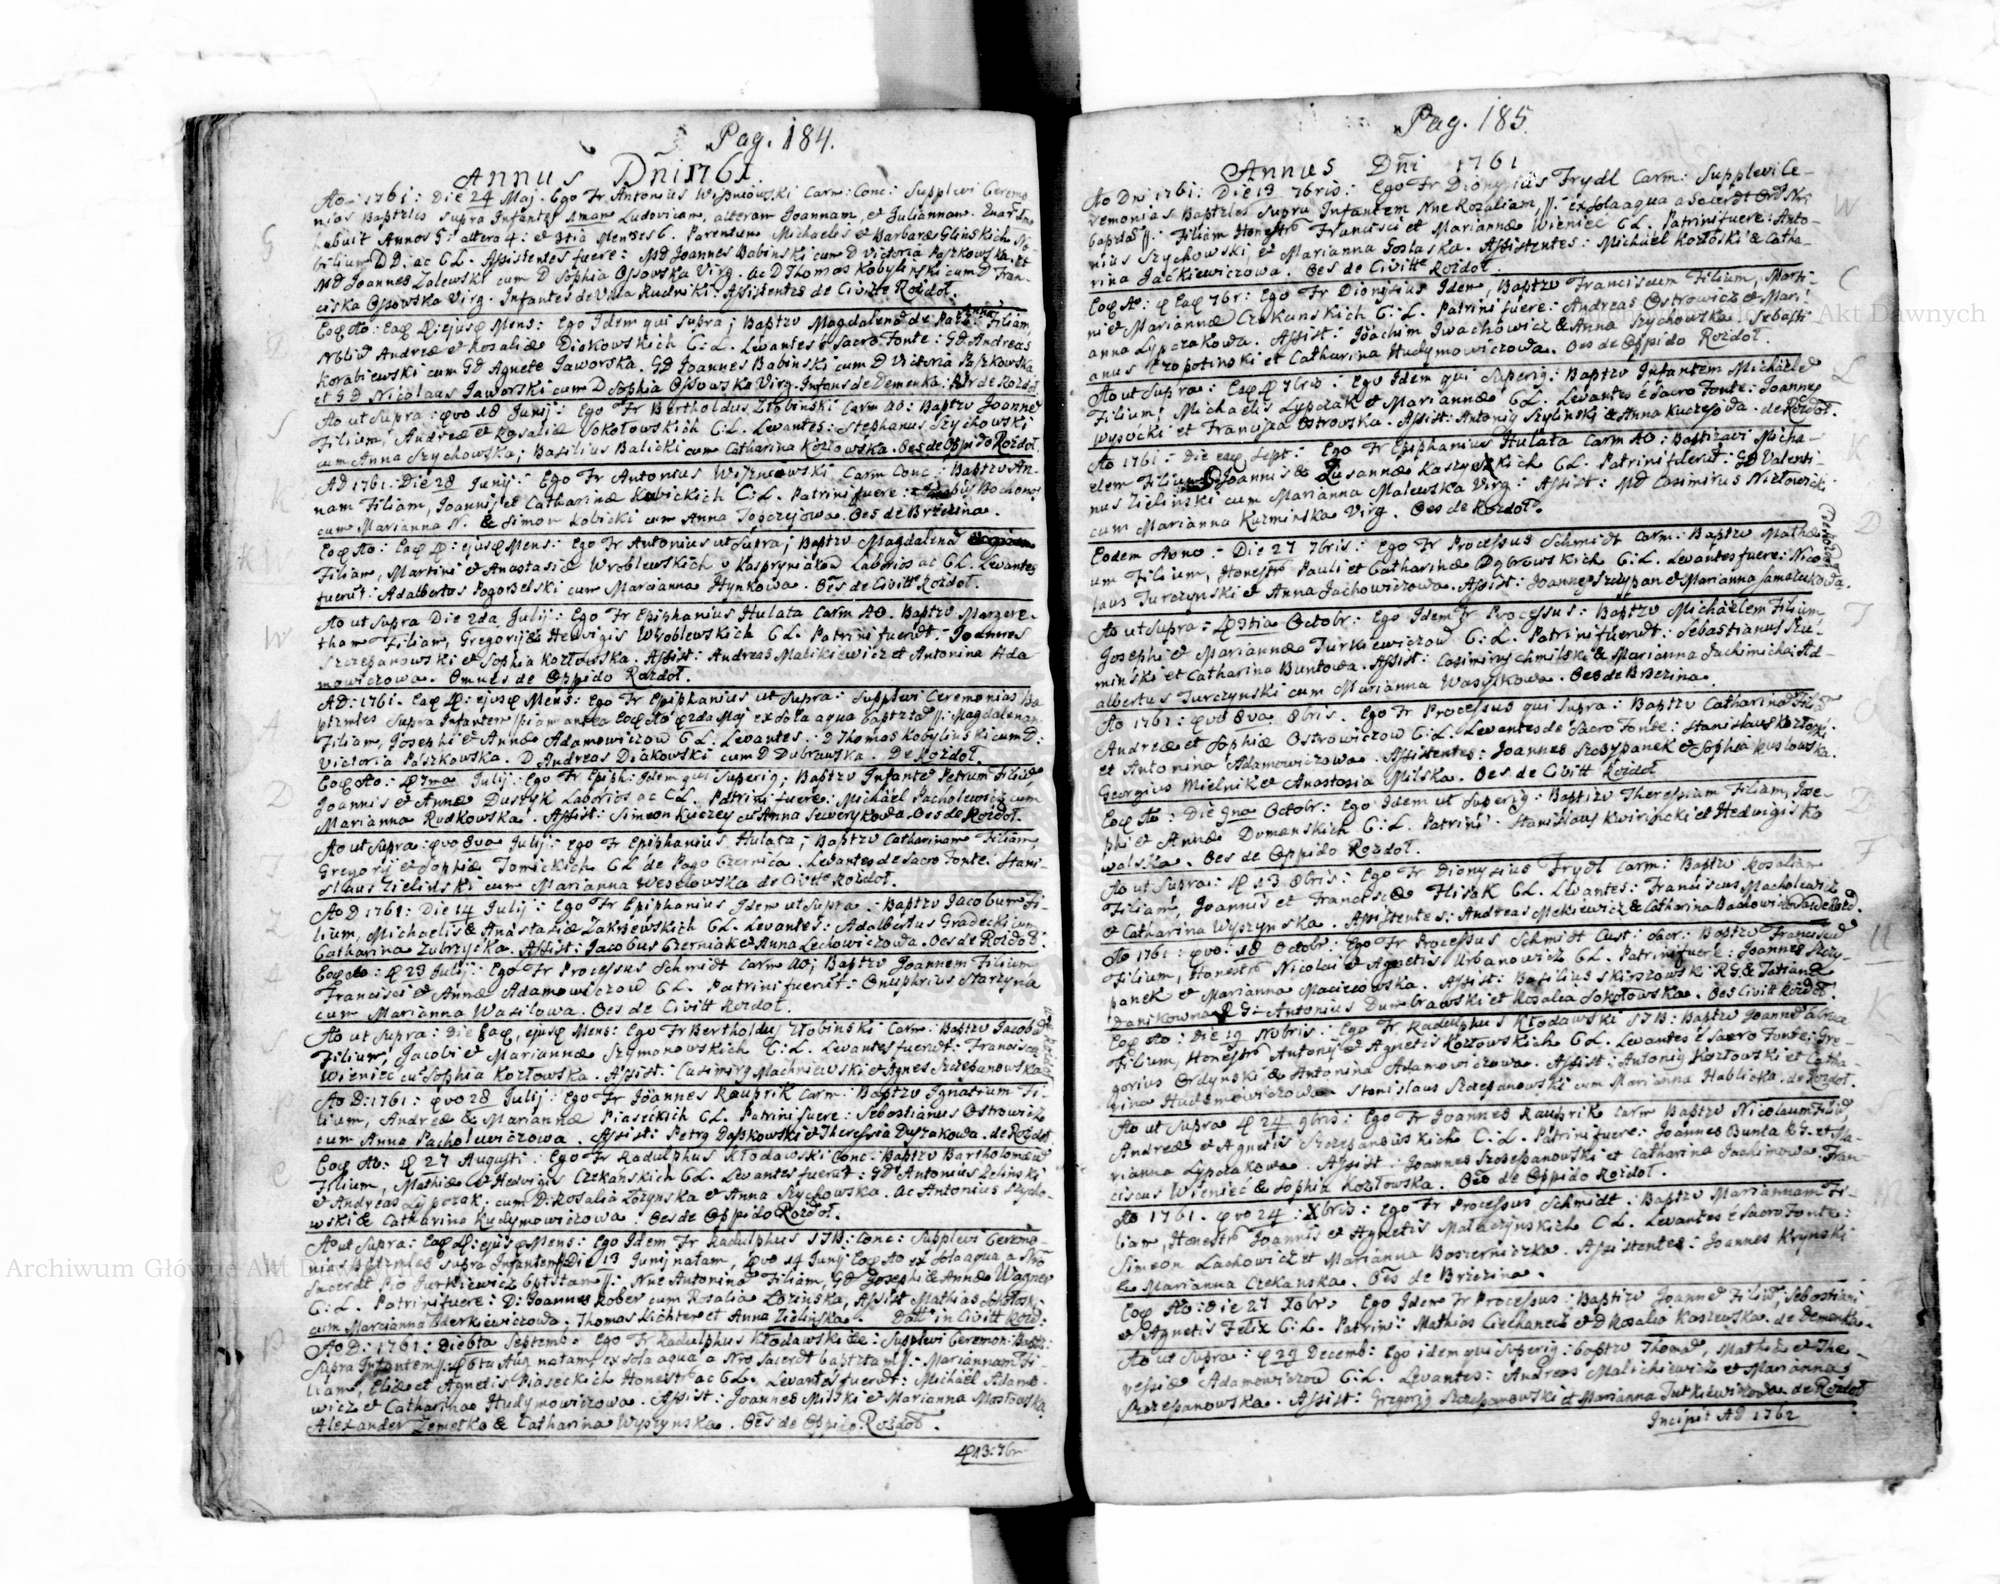 Pag. 184.
Annus Dni 1761.
Ao 1761: Die 24 Maj. Ego Fr Antonius Wiśniowski Carm: Conc: Supplevi Ceremo
nias Baptzles supra Infantes 1mam Ludovicam, alteram Joannam, et Juliannam.
habuit Annos 5: altera 4: et 3tia Menses 6. Parentum Michaelis et Barbaræ Glinskich No-
bilium DD. ac C L. Assistentes fuere: MD Joannes Babinski cum D Victoria Paszkowska. et
MD Joannes Zalewski cum D Sophia Ossowska Virg. ac D Thomas Kobyliński cum D Fran-
ciska Ossowska Virg. Infantes de Villa Rudniki: Assistentes de Civitte Rozdoł.
Eoq Ao: Eaq D: ejusq Mens: Ego Idem qui supra; Baptzv Magdalenā Filiam,
Nbliū Andreæ et Rosaliæ Diakowskich C: L. Levantes è Sacro Fonte: GD Andreas
Korabiewski cum GD Agnete Jaworska. GD Joannes Babinski cum D Victoria Paszkowska.
et GD Nicolaus Jaworski cum D Sophia Ossowska Virg. Infans de Demenka: de Rozdoł
Ao ut Supra: qvo 18 Junij: Ego Fr Bertholdus Złobinski Carm AO: Baptzv Joannē
Filium, Andreæ et Rosaliæ Sokołowskich C: L. Levantes: Stephanus Szychowski
cum Anna Szychowska; Basilius Balicki cum Catharina Kozłowska. Oes de Oppido Rozdoł.
AD 1761. Die 28 Junij: Ego Fr Antonius Wiszniewski Carm Conc: Baptzv An-
nam Filiam, Joannis et Catharinæ C: L. Patrini fuere:
cum Marianna N. & Simon cum Anna. Oes de Brzezina.
Eoq Ao: Eaq D: ejusq Mens: Ego Fr Antonius ut Supra; Baptzv Magdalenā
Filiam, Martini et Anastasiæ Wroblewskich v Kaspryniakow Laborios ac C L. Levantes
fuerūt: Adalbertus Pogorzelski cum Marianna Hynkowa. Oes de Civitte Rozdoł.
Ao ut Supra Die 2da Julij: Ego Fr Epiphanius Hulata Carm AO. Baptzv Margare-
tham Filiam, Gregorij & Hedvigis Wroblewskich C L. Patrini fuerūt: Joannes
Szczepanowski et Sophia Kozłowska. Assist: Andreas Malikiewicz et Antonina Ada
mowiczowa. Omnes de Oppido Rozdoł.
AD: 1761. Eaq D: ejusq Mens: Ego Fr Epiphanius ut Supra: Supplevi Ceremonias Ba
ptzmles Supra Infantem jam antea Eoq Ao 22da Maj ex sola aqua baptztā //: Magdalenam
Filiam, Josephi et Annæ Adamowiczow C L. Levantes: D Thomas Kobylinski cum D:
Victoria Paszkowska. D Andreas Diakowski cum D Dubrawska. De Rozdoł.
Eoq Ao: D 7ma Julij: Ego Fr Epiph: Idem qui Superig; Baptzv Infantē Petrum Filiū,
Joannis et Annæ Duszyk Laborios ac C L. Patrini fuere: Michael Pacholewicz cum
Marianna Rudkowska. Assist: Simeon Kuczey cū Anna Sewerykowa. Oes de Rozdoł.
Ao ut Supra: qvo 8va Julij: Ego Fr Epiphanius Hulata; Baptzv Catharinam Filiam
Gregorij et Sophiæ Tomickich C L de Pago Czernica. Levantes de Sacro Fonte: Stani-
slaus Zielinski cum Marianna Weselowska de Civitte Rozdoł.
Ao D 1761: Die 14 Julij: Ego Fr Epiphanius Idem ut Supra: Baptzv Jacobum Fi-
lium, Michaelis & Anastasiæ Zakrzewskich C L. Levantes: Adalbertus Gradecki cum
Catharina Zubrzycka. Assist: Jacobus Czerniak et Anna Lechowiczowa. Oes de Rozdoł.
Eoq Ao: D 23 Julij: Ego Fr Processus Schmidt Carm AO; Baptzv Joannem Filium
Francisci et Annæ Adamowiczow C L. Patrini fuerūt: Onuphrius Starzyna
cum Marianna Wasilowa. Oes de Civitt Rozdoł.
Ao ut Supra: Die Eaq, ejusq Mens: Ego Fr Bertholdus Złobinski Carm: Baptzv Jacobū
Filium, Jacobi et Mariannæ Szymanowskich C: L. Levantes fuerūt: Franciscus
Wieniec cū Sophia Kozłowska. Assist: Casimirg Machniewski et Agnes Szczepanowska
Ao D: 1761: qvo 28 Julij: Ego Fr Joannes Rauprik Carm: Baptzv Ignatium Fi-
lium, Andreæ & Mariannæ Piaseckich C L. Patrini fuere: Sebastianus Ostrowicz
cum Anna Pacholewiczowa. Assist: Petrg Daszkowski et Theressia Duszakowa. de Rozdoł.
Eoq Ao: D 27 Augusti: Ego Fr Radulphus Kłodawski Conc: Baptzv Bartholomæū
Filium, Mathiæ et Hedvigis Czekańskich C L. Levantes fuerūt: GD Antonius Zelinski
et Andreas Lypczak; cum D: Rosalia Łozynska et Anna Szychowska. Ac Antonius Szycho-
wski & Catharina Kudymowiczowa. Oes de Oppido Rozdoł.
Ao ut Supra: Eaq D: ejusq Mens: Ego Idem Fr Radulphus STB: Conc: Supplevi Ceremo-
nias Baptzmles supra Infantem //: Die 13 Junij natam, qvo 14 Junij Eoq Ao ex sola aqua a Nro
Sacerdt Pio Jurkiewicz bptztam //: Nne Antoninā Filiam, GD Josephi & Annæ Wagner
C: L. Patrini fuere: D: Joannes Kober cum Rosalia Łozinska, Assist Mathias Sokołoski
cum Marianna Aderkiewiczowa. Thomas Lichter et Anna Zielinska. Datt in Civitt Rozd:
Ao D: 1761: Die 6ta Septemb: Ego Fr Radulphus Kłodawski &c: Supplevi Ceremon: Baptz:
Supra Infantem //: D 6ta Aug natam, ex sola aqua a Nro Sacerdt baptztam //: Mariannam Fi-
liam, Eliæ et Agnetis Piaseckich Honestr ac C L. Levantes fuerūt: Michael Adamo-
wicz et Catharina Hudymowiczowa. Assist: Joannes Milski et Marianna Mostowska
Alexander Zemełka & Catharina Wyszynska. Oes de Oppido Rozdoł.
D 13: 7br
Pag. 185
Annus Dni 1761
Ao Dn 1761: Die 13 7bris: Ego Fr Dionysius Frydl Carm: Supplevi Ce-
remonias Baptzles Supra Infantem Nne Rozaliam, //: ex sola aqua a Sacerdt Ord Nri
baptzā //: Filiam Honestr Francisci et Mariannæ Wieniec C L. Patrini fuere: Anto-
nius Szychowski, et Marianna Goslaska. Assistentes: Michael Kozłoski & Catha-
rina Jackiewiczowa. Oes de Civitte Rozdoł.
Eoq Ao: D Eaq 7br: Ego Fr Dionysius Idem, Baptzv Franciscum Filium, Marti-
ni et Mariannæ Czekanskich C: L. Patrini fuere: Andreas Ostrowicz et Mari-
anna Lypczakowa. Assist: Joachim Iwachowicz & Anna Szychowska Sebasti-
anus Czopotinski et Catharina Hudymowiczowa. Oes de Oppido Rozdoł.
Ao ut Supra: Eaq D 7bris: Ego Idem qui Superig: Baptzv Infantem Michaelē
Filium, Michaelis Lypczak et Mariannæ C L. Levantes è Sacro Fonte: Joannes
Wysocki et Francisca Ostrowska. Assist: Antonig Szylinski & Anna Kuczesida. de Rozdoł.
Ao 1761: Die eaq Sept: Ego Fr Epiphanius Hulata Carm AO: Baptizavi Micha-
elem Filium Joannis & Zusannæ Kaszyckich C L. Patrini fuerūt: GD Valenti-
nus Zielinski cum Marianna Malewska Virg: Assist: MD Casimirus Nizłowicki
cum Marianna Kuzminska Virg. Oes de Rozdoł.
Eodem Anno: Die 27 7bris: Ego Fr Processus Schmidt Carm: Baptzv Mathæ
um Filium, Honestr Pauli et Catharinæ Dąbrowskich C: L. Levantes fuere: Nico
laus Turczynski et Anna Jachowiczowa. Assist: Joannes Szczypan et Marianna Samolukowa.
Ao ut Supra: D 3tia Octobr: Ego Idem Fr Processus: Baptzv Michaelem Filium,
Josephi et Mariannæ Turkiewiczow C: L. Patrini fuerūt: Sebastianus Szu-
minski et Catharina Buntowa. Assist: Casimirus Chmilski & Marianna Jachimicha: Ad-
albertus Turczynski cum Marianna Wasylkowa. Oes de Brzezina.
Ao 1761: qvo 8va 8bris. Ego Fr Processus qui Supra: Baptzv Catharinā Filiā
Andreæ et Sophiæ Ostrowiczow C: L. Levantes de Sacro Fonte: Stanislaus Kozłoski
et Antonina Adamowiczowa. Assistentes: Joannes Szczypanek et Sophia Kuslowska.
Georgius Mielnik et Anastasia Milska. Oes de Civitt Rozdoł
Eoq Ao: Die 9na Octobr: Ego Idem ut Superig: Baptzv Theressiam Filiam, Jose-
phi et Annæ Domanskich C: L. Patrini: Stanislaus Kwiriński et Hedwigis Ko
walska. Oes de Oppido Rozdoł.
Ao ut Supra: D 13 8bris: Ego Fr Dionysius Frydl Carm: Baptzv Rosaliam
Filiam, Joannis et Franciscæ Flisak C L. Levantes: Franciscus Macholewicz
et Catharina Wyszynska. Assistentes: Andreas Mekiewicz & Catharina Bachowiczowa de Rozd.
Ao 1761: qvo: 18 Octobr: Ego Fr Processus Schmidt Cust: Sacr: Baptzv Franciscū
Filium, Honestr Nicolai et Agnetis Urbanowicz C L. Patrini fuere: Joannes Szczy-
panek et Marianna Maciejowska. Assist: Basilius Skirzowski R G & Tatiana
Danikowna R G: Antonius Dumbrawski et Rosalia Sokołowska. Oes Civitt Rozdoł.
Eoq Ao: Die 19 Nvbris: Ego Fr Radulphus Kłodawski STB: Baptzv Joannē à Cruce
Filium, Honestr Antonij et Agnetis Kozłowskich C L. Levantes è Sacro Fonte: Gre-
gorius Ordynski & Antonina Adamowiczowa. Assist: Antonig Kozłowski et Catha-
rina Hudymowiczowa. Stanislaus Szczepanowski cum Marianna Hablicka. de Rozdoł.
Ao ut Supra D 24 9bris: Ego Fr Joannes Rauprik Carm Baptzv Nicolaum Filiū
Andreæ et Agnetis Szczepanoskich C: L. Patrini fuere: Joannes Bunta R G. et Ma-
rianna Lypczakowa. Assist: Joannes Szczepanowski et Catharina Jachimowa. Fran-
ciscus Wieniec & Sophia Kozłowska. Oes de Oppido Rozdoł.
Ao 1761. qvo 24: Xbris: Ego Fr Processus Schmidt: Baptzv Mariannam Fi-
liam, Honestr Joannis et Agnetis Mataczynskich C L. Levantes è Sacro Fonte:
Simeon Lachowicz et Marianna Bozierniczka. Assistentes: Joannes Krynski
& Marianna Czekanska. Oes de Brzezina.
Eoq Ao: Die 27 Xobr: Ego Idem Fr Processus: Baptzv Joannē Filiū, Sebastiani
et Agnetis Felix C: L. Patrini: Mathias Ciechanicz et D Rosalia Koszewska. de Demenka.
Ao ut Supra: D 29 Decemb: Ego idem qui Superig: baptzv Thomā, Mathiæ et The-
ressiæ Adamowiczow C: L. Levantes: Andreas Malichiewicz et Marianna
Szczepanowska. Assist: Gregorig Szczepanowski et Marianna Jutkiewiczowa. de Rozdoł
Incipit AD 1762
Archiwum Główne Akt Dawnych